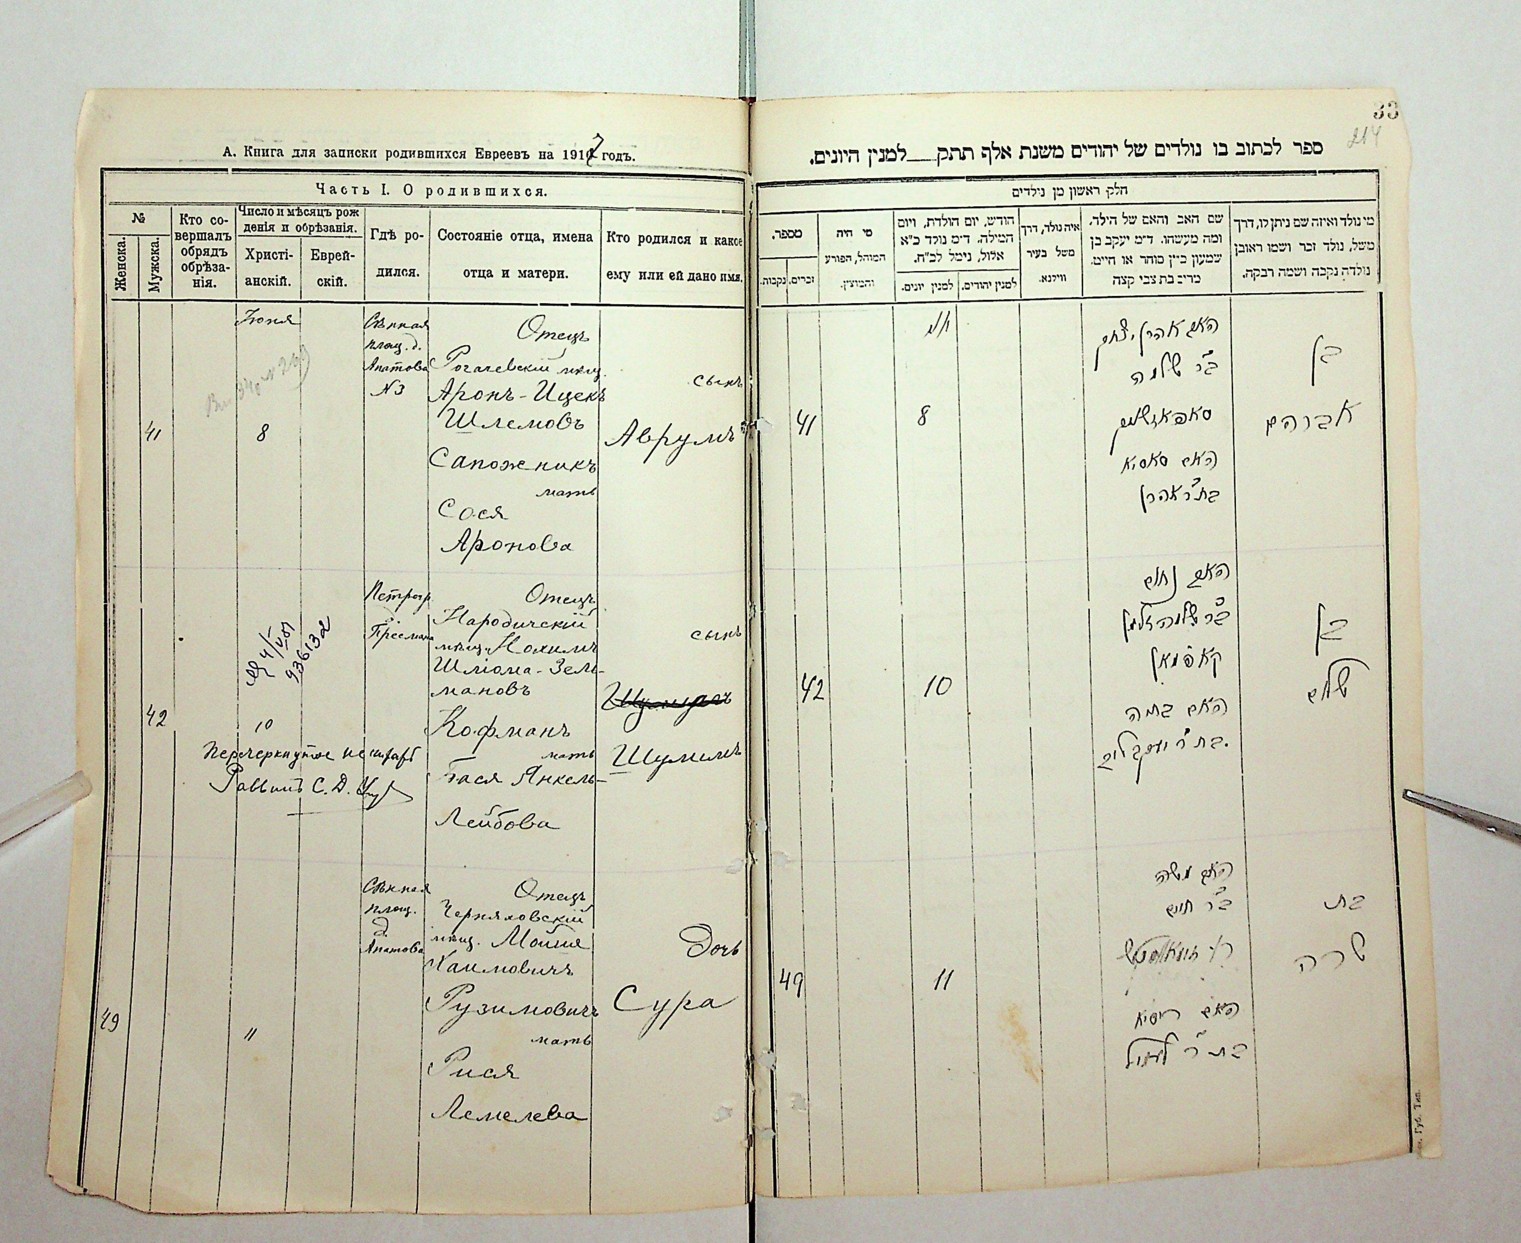 А. Книга для записки родившихся Евреевъ на 1917 годъ.
Часть I. О родившихся.
№
Женска.
Мужска.
Кто совершалъ обрядъ обрѣзанія.
Число и мѣсяцъ рожденія и обрѣзанія.
Христіанскій.
Еврейскій.
Гдѣ родился.
Состояніе отца, имена отца и матери.
Кто родился и какое ему или ей дано имя.
41
Іюня
8
Сѣнная
площ. д.
Апатова
№ 3
Отецъ
Рогачевскій мѣщ.
Аронъ-Ицекъ
Шлемовъ
Сапожникъ
мать
Сося
Аронова
сынъ
Аврумъ
42
10
Перечеркнутое не читать
Раввинъ С. Д.
Петрогр.
д.
Отецъ
Народичскій
мѣщ. Нохимъ
Шліома-Зель-
мановъ
Кофманъ
мать
Бася Янкель-
Лейбова
сынъ
Шулимъ
49
11
Сѣнная
площ.
д.
Апатова
Отецъ
Черняховскій
мѣщ. Мойше
Хаимовичъ
Рузимовичъ
мать
Рися
Лемелева
Дочь
Сура
33
214
ספר לכתוב בו נולדים של יהודים משנת אלף תתק למנין היונים.
חלק ראשון מן נולדים
מספר.
נקבות.
זכרים.
מי היה
המוהל, הפורע
והמוצץ.
חודש, יום הולדת, ויום
המילה. ד״מ נולד כ״א
אלול, נימל לכ״ח.
למנין יונים.
למנין יהודים.
איה נולד, דרך
משל בעיר
ווילנא.
שם האב והאם של הילד,
ומה מעשהו. ד״מ יעקב בן
שמעון כ״ץ סוחר או חייט.
מרים בת צבי קצב
מי נולד ואיזה שם ניתן לו, דרך
משל, נולד זכר ושמו ראובן
נולדה נקבה ושמה רבקה.
41
8
האב אהרן יצחק
ב״ר שלמה
האם סאסיא
בת ר׳ אהרן
בן
אברהם
42
10
האב נחום
ב״ר שלמה זלמן
קאפמאן
האם בתיה
בת ר׳ יעקב ליב.
בן
שלום
49
11
האב משה
ב״ר חיים
האם ריסיא
בת ר׳
בת
שרה
Губ. Тип.